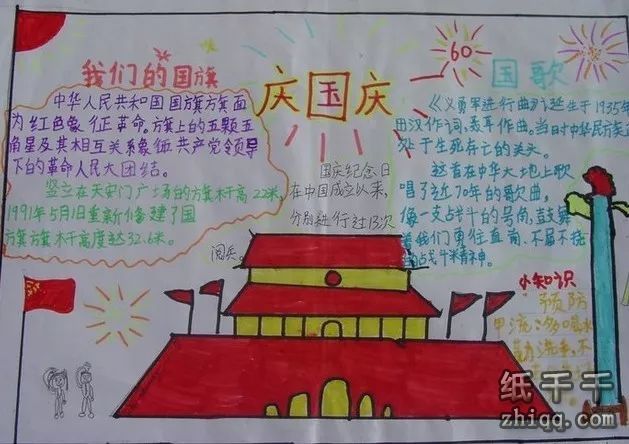 我们的国旗
中华人民共和国国旗旗面
为红色象征革命。旗上的五颗五
角星及其相互关系象征共产党领导
下的革命人民大团结。
竖立在天安门广场的旗杆高22米,
1991年5月1日重新修建了国
旗旗杆高度达32.6米。
庆国庆
60
国庆纪念日
在中国成立以来,
分别进行过13次
阅兵。
国歌
《义勇军进行曲》诞生于1935年
田汉作词,聂耳作曲,当日时中华民族正
处于生死存亡的关头。
这首在中华大地上歌
唱了近70年的歌曲,
像一支战斗的号角,鼓舞
着我们勇往直前、不屈不挠
战斗精神。
小知识
预防
甲流:多喝水
洗手,不
纸千千
zhiqq.com